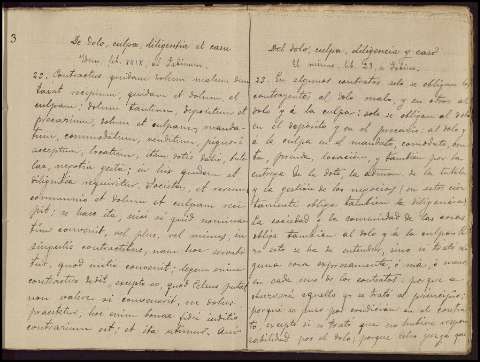 3
De dolo, culpa, diligentia et casu
lib. XXIX, ad Sabinum.
23. Contractus quidam dolum malum dum
taxat recipiunt, quidam et dolum et
culpam: dolum tantum, depositum et
precarium, dolum et culpam, manda-
tum, commodatum, venditum, pignori
acceptum, locatum, item dotis datio, tute-
lae, negotia gesta; in his quidem et
diligentia requiritur. Societas, et rerum
communio et dolum et culpam reci
pit; sed haec ita, nisi si quid nomina-
tim convenit, vel plus, vel minus, in
singulis contractibus, nam hoc servabi-
tur, quod initio convenit; legem enim
contractus dedit, excepto eo, quod Celsus putat
non valere, si convenerit, ne dolus
praestetur, hoc enim bonae fidei iudicio
contrarium est; et ita utimur.
Del dolo, culpa, diligencia y caso
lib. 29 a Sabino.
23. En algunos contratos, solo se obligan los
contrayentes al dolo malo, y en otros al
dolo y á la culpa: solo se obligan al dolo
en el depósito y en el precario, al dolo y
á la culpa en el mandato, comodato, ven-
ta, prenda, locacion, y tambien por la
entrega de la dote, la admon. de la tutela
y la gestion de los negocios;
obliga tambien la diligencia.
La sociedad y la comunidad de las cosas
obliga tambien al dolo y á la culpa.
no esto se ha de entender, sino se trató al-
guna cosa expresamente, ó más, ó menos
en cada uno de los contratos: porque se
observará aquello que se trató al principio;
porque se puso por condicion en el contra
to, excepto si se trató que no hubiese respon
sabilidad por el dolo; porque